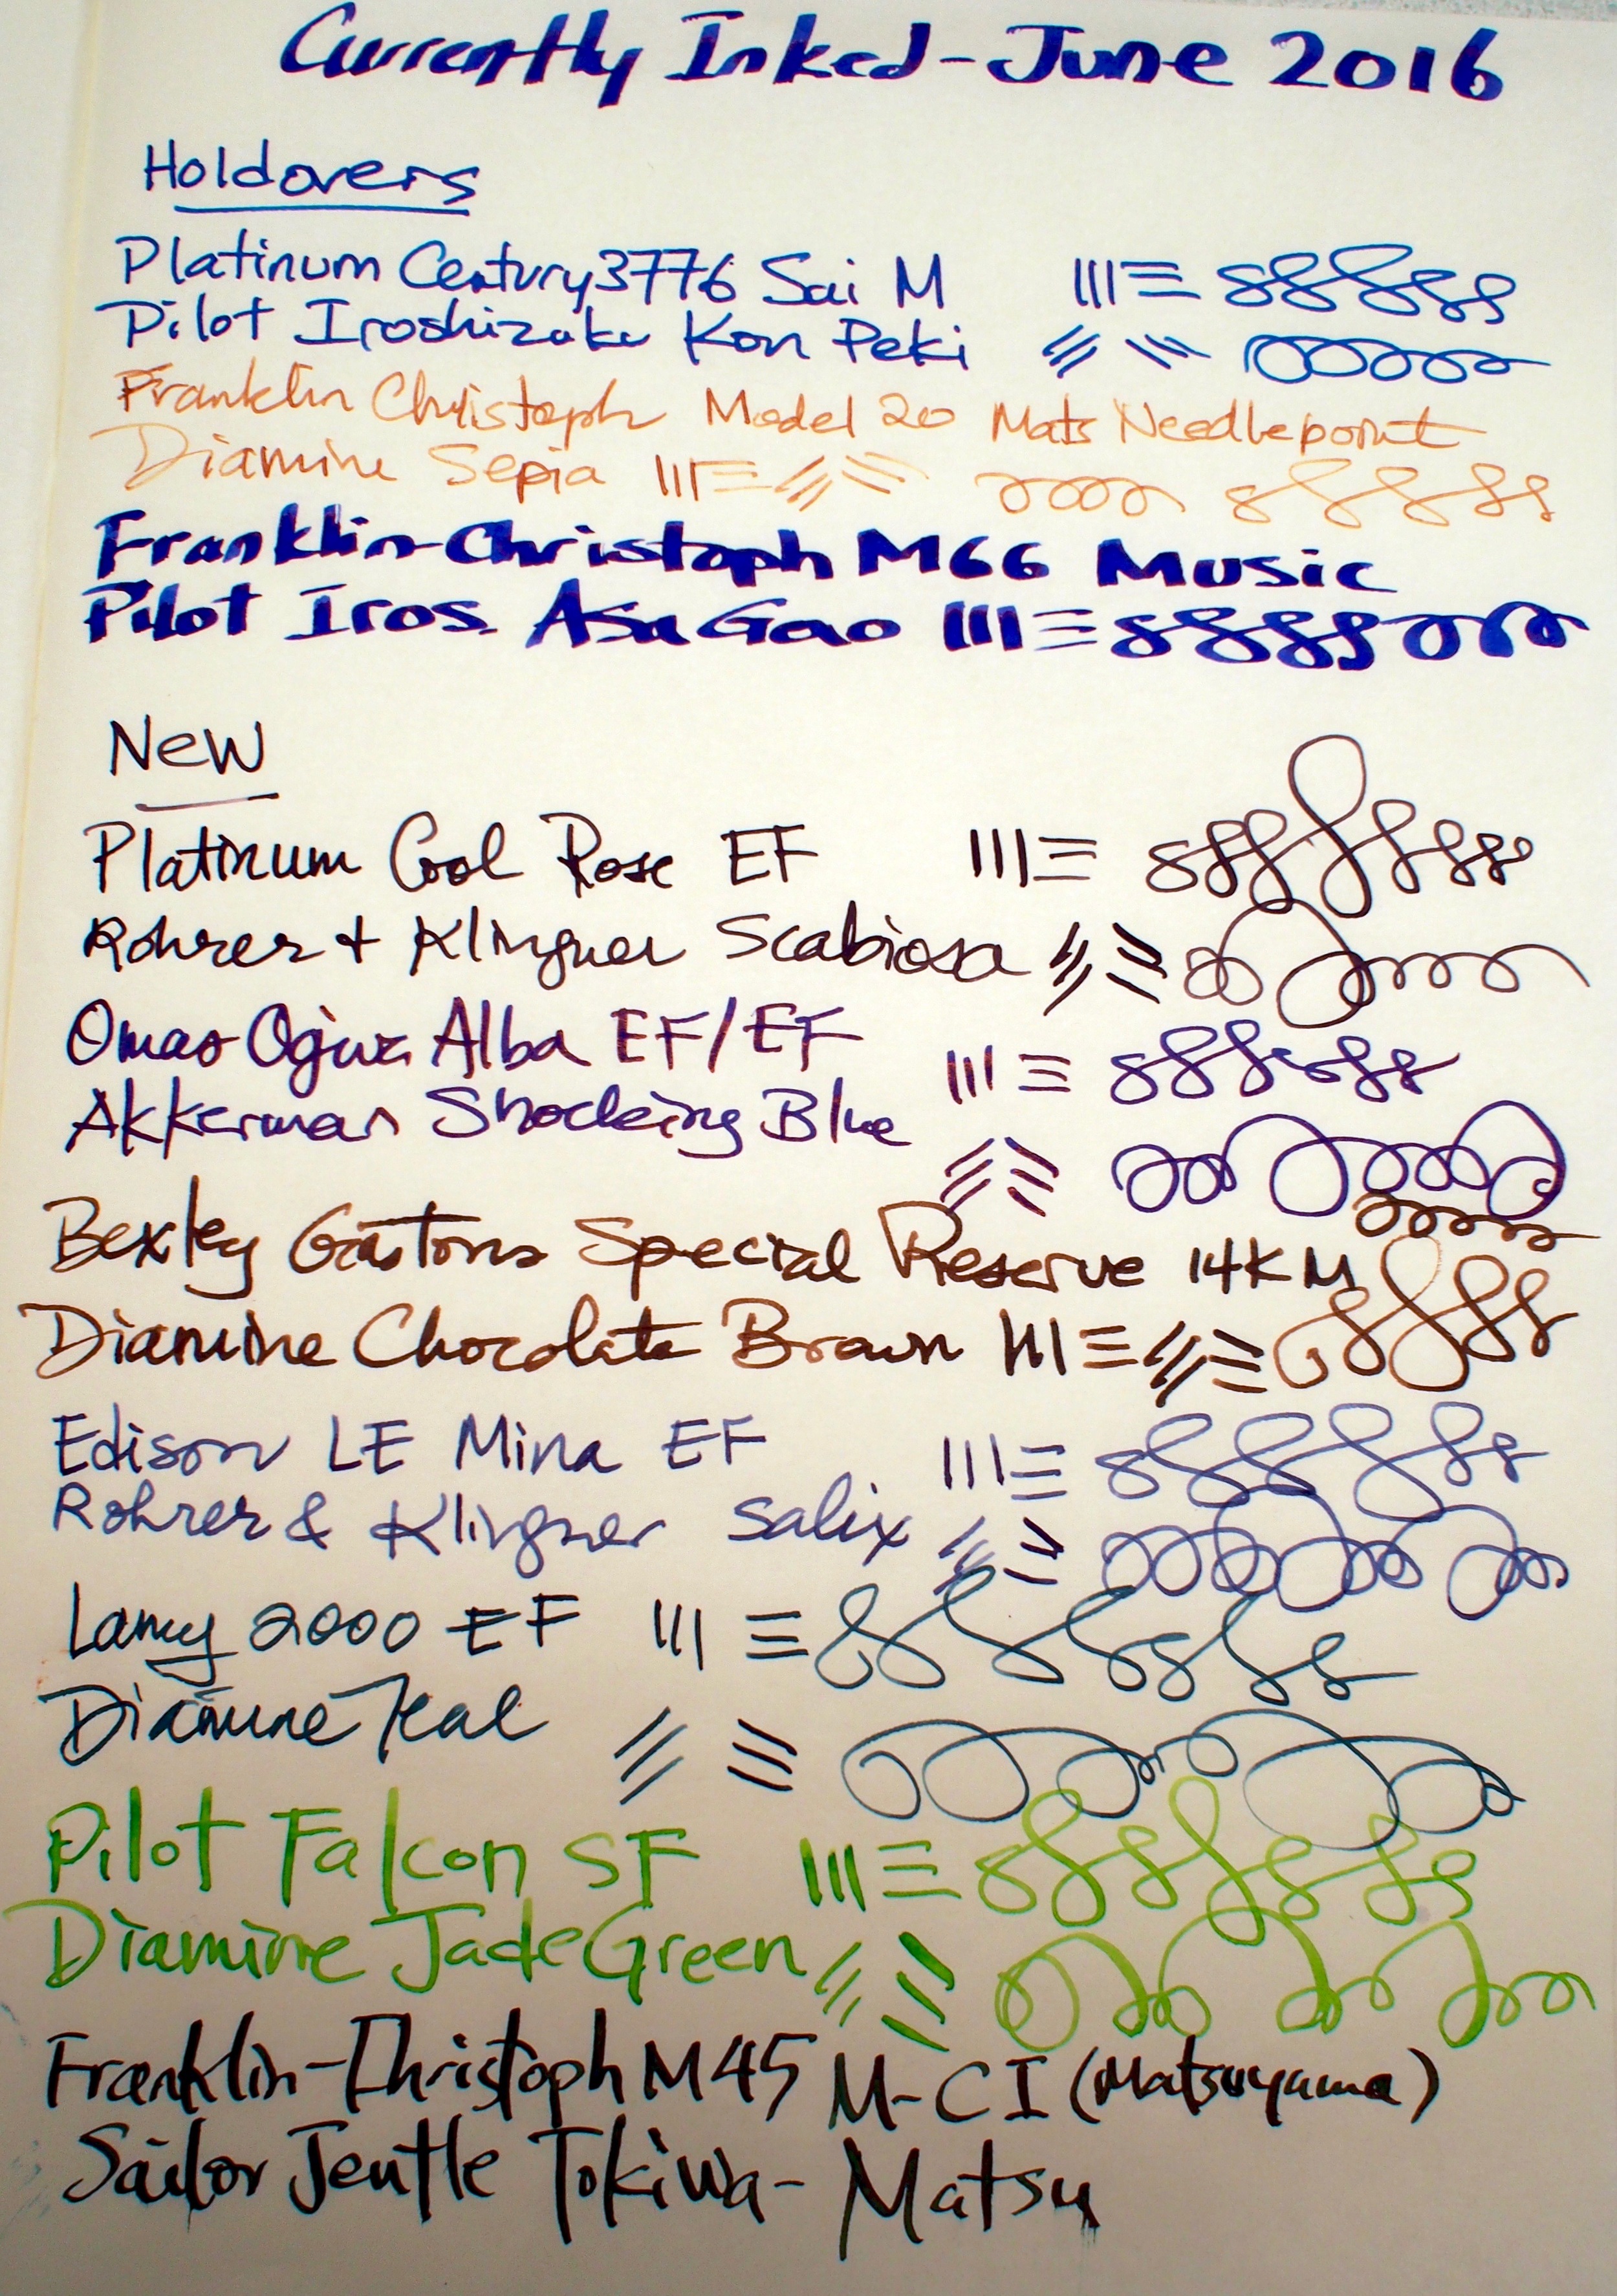 Currently Inked - June 2016
Holdovers
Platinum Century 3776 Sai M
Pilot Iroshizuku Kon Peki
Franklin Christoph Model 20 Mats Needlepoint
Diamine Sepia
Franklin-Christoph M66 Music
Pilot Iros. Asa Gao
New
Platinum Cool Rose EF
Rohrer + Klingner Scabiosa
Omas Ogiva Alba EF/EF
Akkerman Shocking Blue
Bexley Gastons Special Reserve 14K M
Diamine Chocolate Brown
Edison LE Mina EF
Rohrer & Klingner Salix
Lamy 2000 EF
Diamine Teal
Pilot Falcon SF
Diamine Jade Green
Franklin-Christoph M45 M-CI (Matsuyama)
Sailor Jentle Tokiwa-Matsu